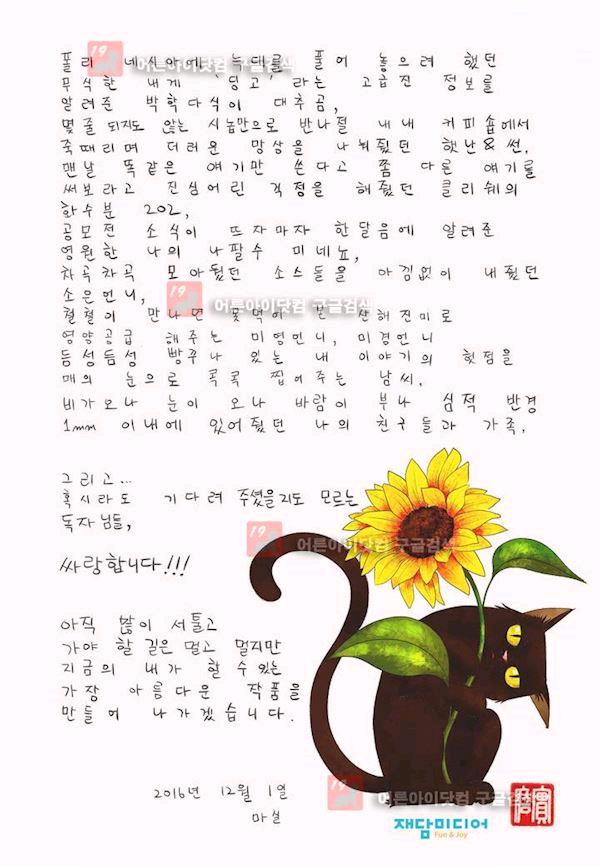 폴리네시아에 늑대를 풀어 놓으려 했던
무식한 내게 '딩고'라는 고급진 정보를
알려준 박학다식이 대추곰,
몇줄 되지도 않는 시놉만으로 반나절 내내 커피숍에서
죽때리며 더러운 망상을 나눠줬던 햇난&썬,
맨날 똑같은 얘기만 쓴다고 좀 다른 얘기를
써보라고 진심어린 걱정을 해줬던 클리쉐의
화수분 202,
공모전 소식이 뜨자마자 한달음에 알려준
영원한 나의 나팔수 미네뇨,
차곡차곡 모아뒀던 소스들을 아낌없이 내줬던
소은언니,
철철이 만나면 산해진미로
영양공급 해주는 미영언니, 미경언니
듬성듬성 빵꾸나 있는 내 이야기의 헛점을
매의 눈으로 콕콕 찝어주는 남씨,
비가오나 눈이 오나 바람이 부나 심적 반경
1mm 이내에 있어줬던 나의 친구들과 가족,
그리고...
혹시라도 기다려 주셨을지도 모르는
독자님들,
싸랑합니다!!!
아직 많이 서툴고
가야 할 길은 멀고 멀지만
지금의 내가 할 수 있는
가장 아름다운 작품을
만들어 나가겠습니다.
2016년 12월 1일
마실
재담미디어
Fun & Joy
19 어른아이닷컴 구글검색
19 어른아이닷컴 구글검색
19 어른아이닷컴 구글검색
19 어른아이닷컴 구글검색